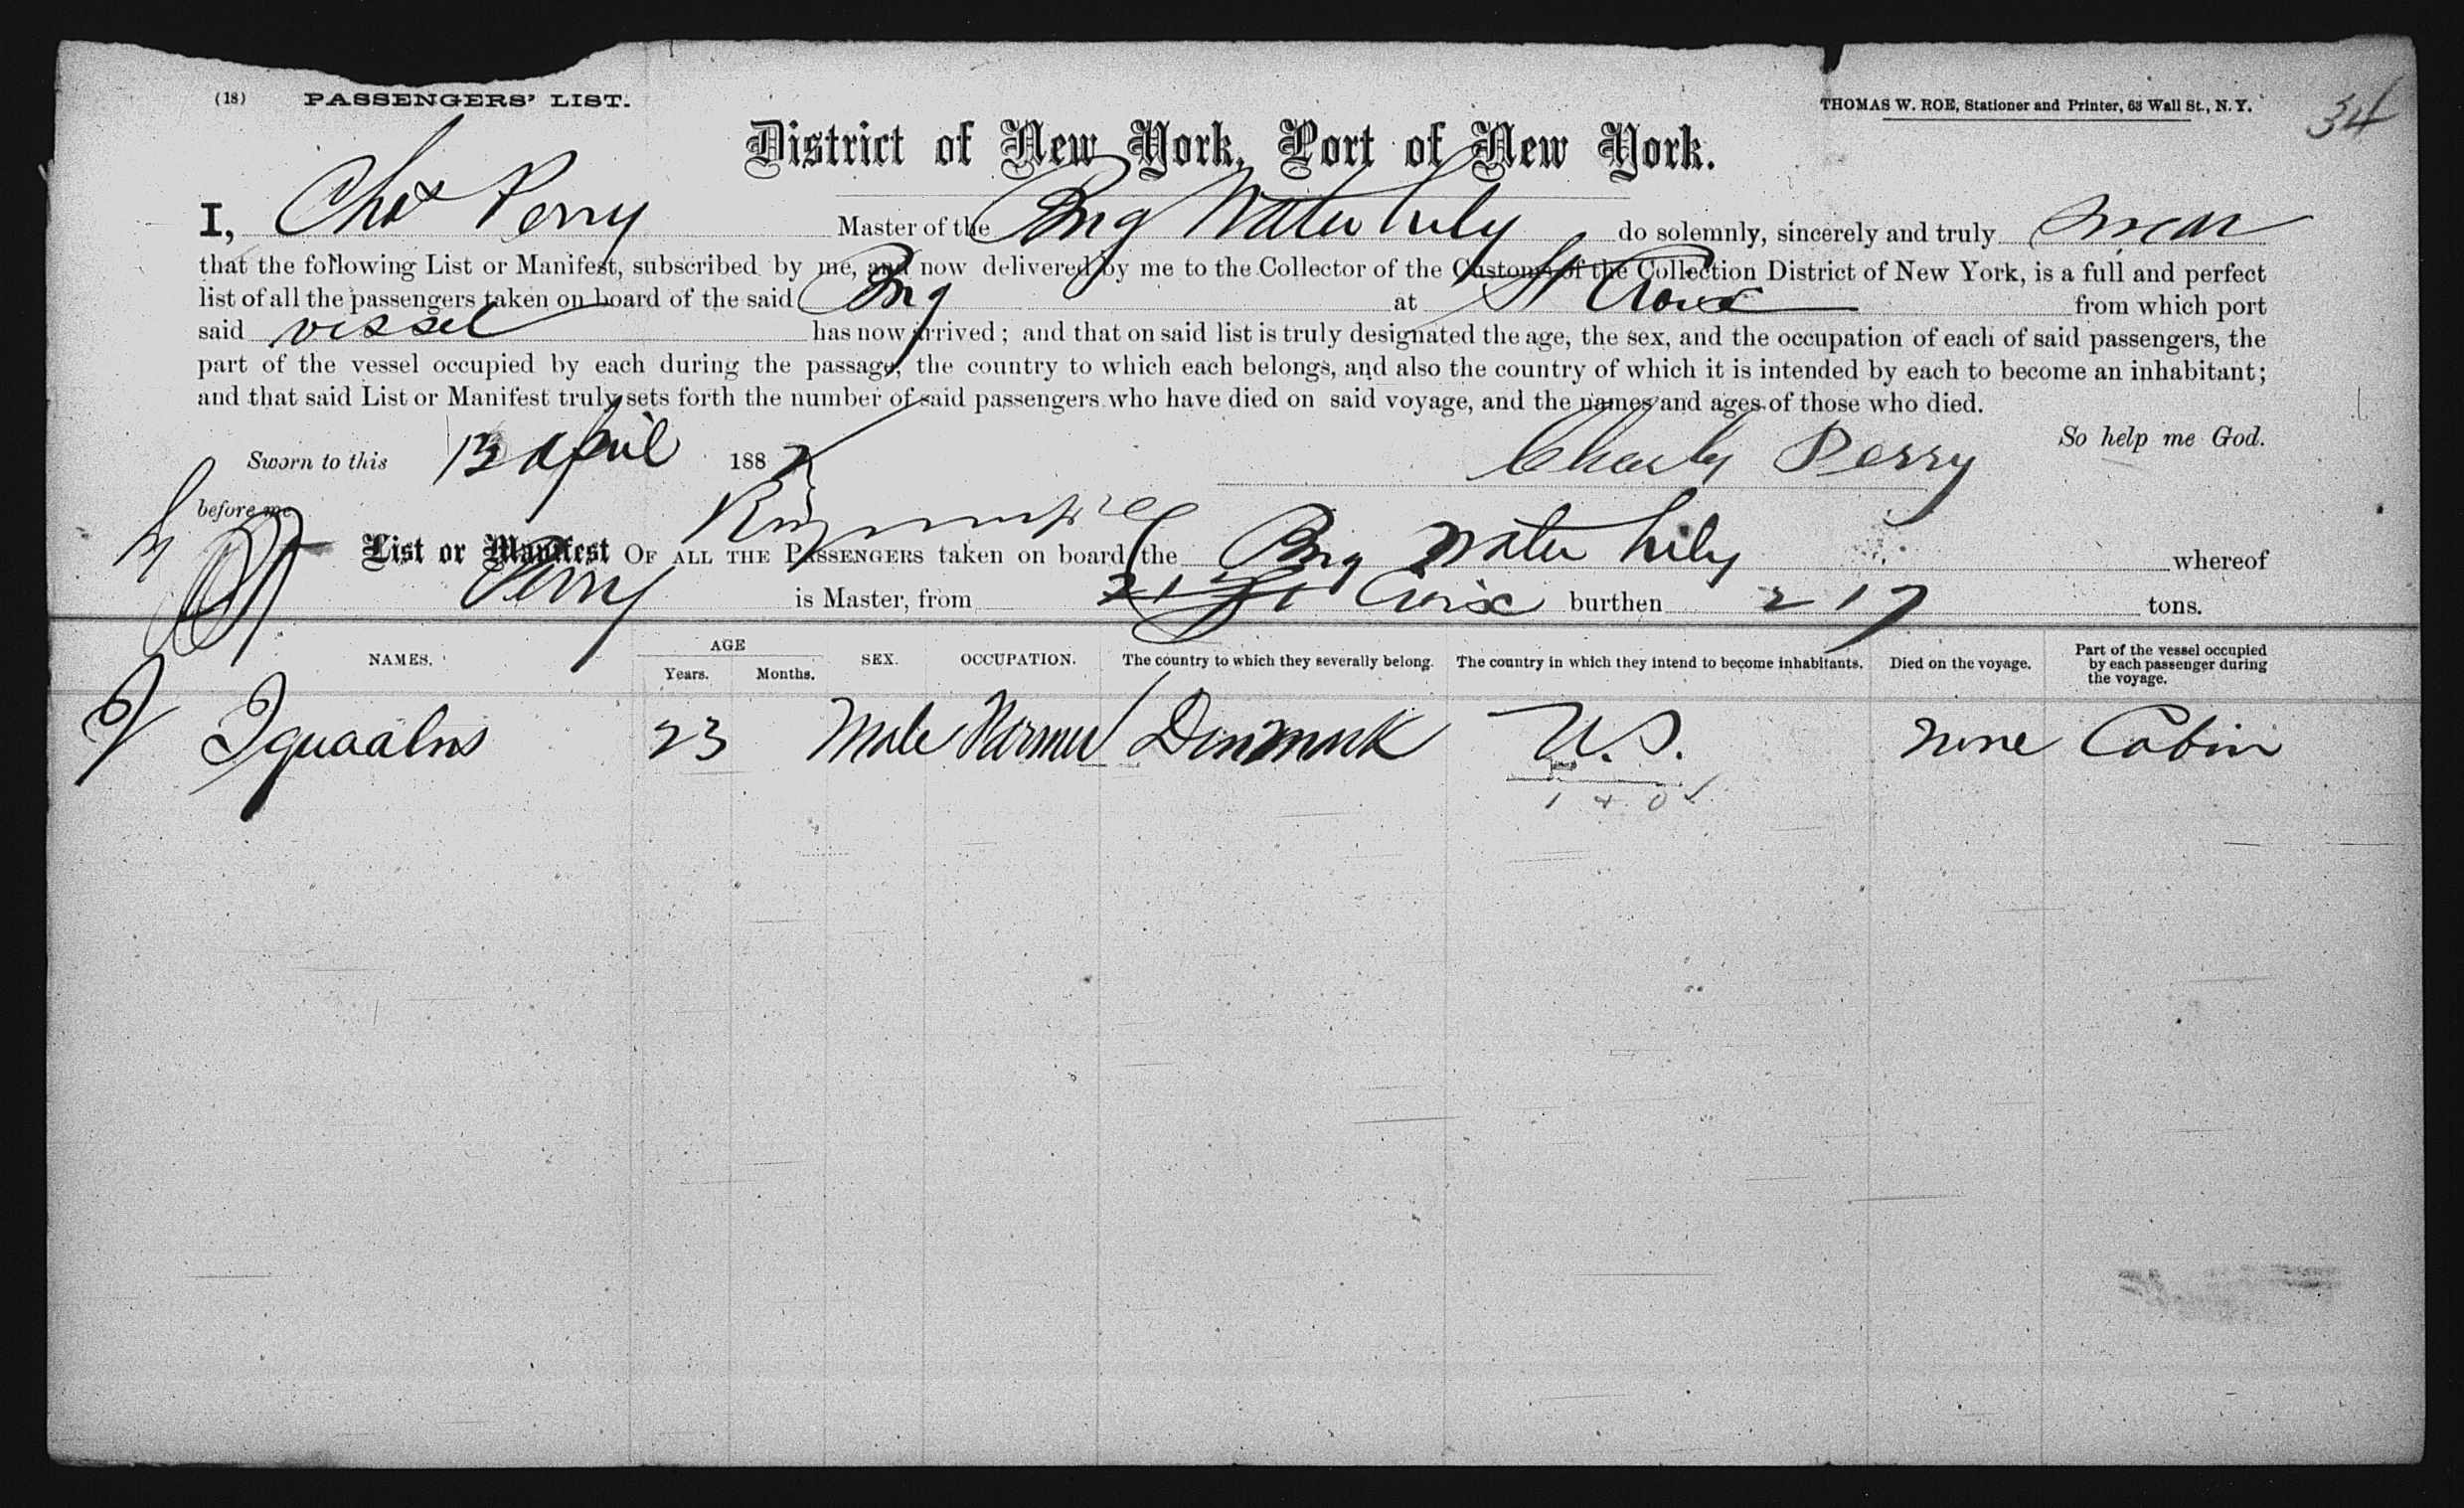 (18) PASSENGERS' LIST. THOMAS W. ROE, Stationer and Printer, 63 Wall St., N.Y. 34
District of New York, Port of New York.
I, Chas Perry Master of the Brig Water Lily do solemnly, sincerely and truly swear
that the following List or Manifest, subscribed by me, and now delivered by me to the Collector of the Customs of the Collection District of New York, is a full and perfect
list of all the passengers taken on board of the said Brig at St Croix from which port
said vessel has now arrived; and that on said list is truly designated the age, the sex, and the occupation of each of said passengers, the
part of the vessel occupied by each during the passage, the country to which each belongs, and also the country of which it is intended by each to become an inhabitant;
and that said List or Manifest truly sets forth the number of said passengers who have died on said voyage, and the names and ages of those who died.
So help me God.
Sworn to this 13 April 188 Charly Perry
before me
List or Manifest OF ALL THE PASSENGERS taken on board the Brig Water Lily whereof
Perry is Master, from St Croix burthen 217 tons.
NAMES. AGE Years. Months. SEX. OCCUPATION. The country to which they severally belong. The country in which they intend to become inhabitants. Died on the voyage. Part of the vessel occupied by each passenger during the voyage.
23 Male Farmer Denmark U.S. None Cabin